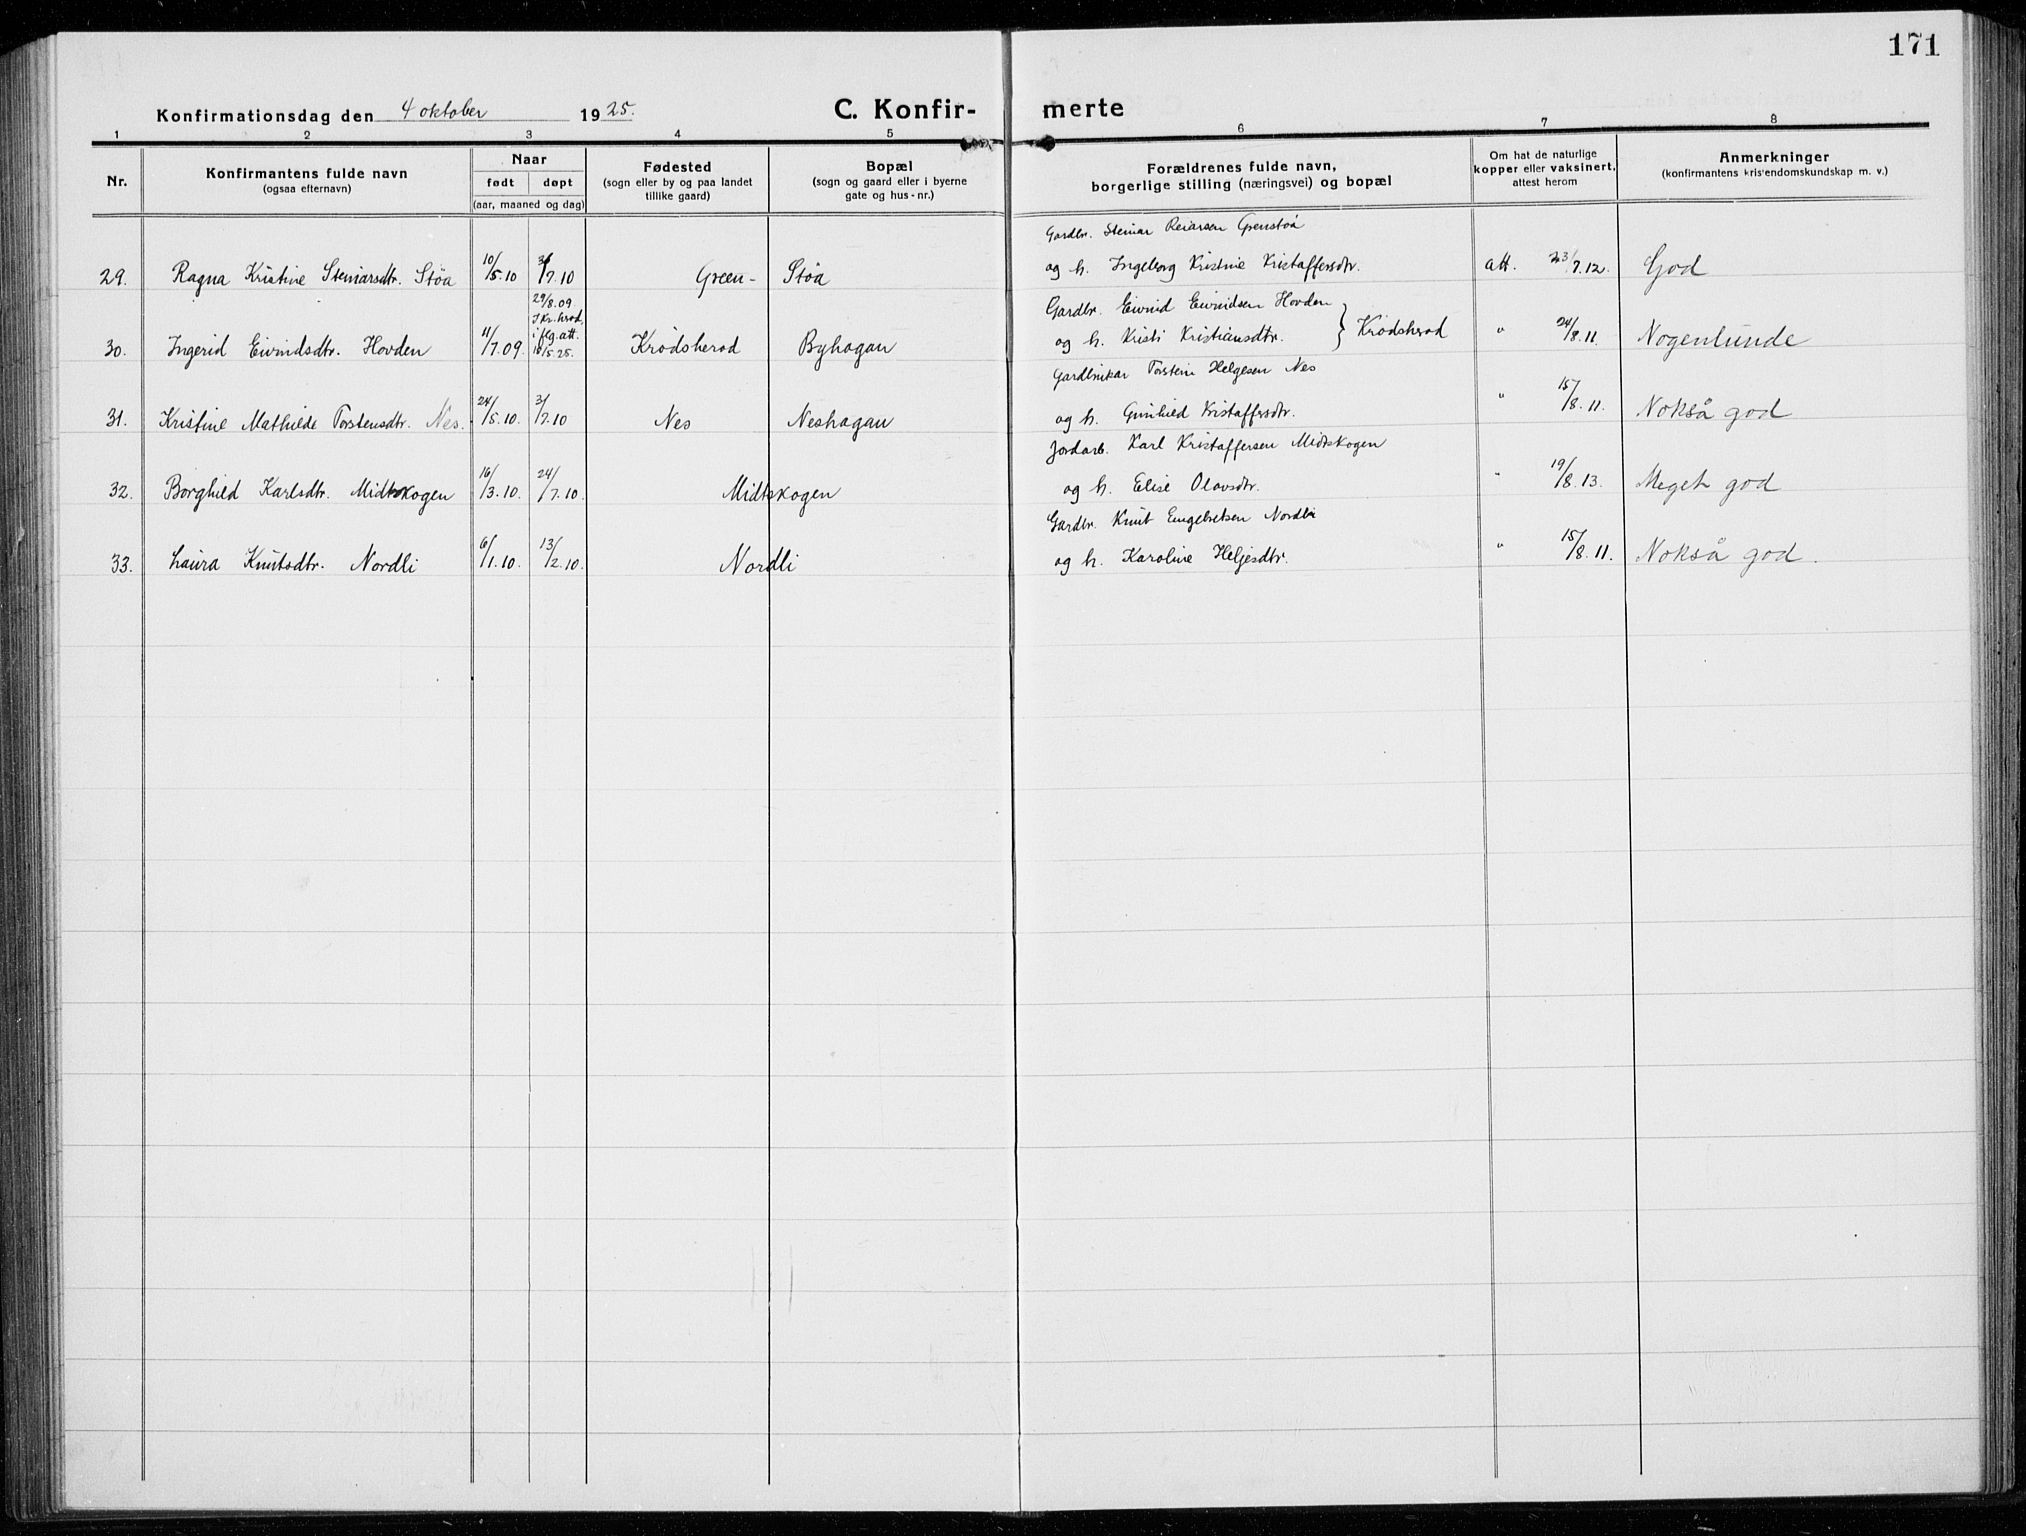 171
Konfirmationsdag den 4 oktober 1925.
C. Konfir- merte
1 2 3 4 5 6 7 8
Nr.
Konfirmantens fulde navn
(ogsaa efternavn)
Naar
født døpt
(aar, maaned og dag)
Fødested
(sogn eller by og paa landet
tillike gaard)
Bopæl
(sogn og gaard eller i byerne
gate og hus-nr.)
Forældrenes fulde navn,
borgerlige stilling (næringsvei) og bopæl
Om hat de naturlige
kopper eller vaksinert,
attest herom
Anmerkninger
(konfirmantens kristendomskundskap m. v.)
Gardbr. Steinar Reiarsen Grenstøa
29. Ragna Kristine Steinarsdtr. Støa 10/5.10 3/7.10 Green- Støa og h. Ingeborg Kristine Kristaffersdtr. att. 23/7.12. God
29/8.09.
I Kr.herad,
Gardbr. Eivind Eivindsen Hovden
30. Ingerid Eivindsdtr. Hovden 11/7.09 i flg. att. 18/5.25. Krødsherad Byhagan og h. Kristi Kristiansdtr. } Krødsherad " 24/8.11. Nogenlunde
Gardbrukar Torstein Helgesen Nes
31. Kristine Mathilde Torstensdtr. Nes. 24/5.10. 3/7.10 Nes Neshagan og h. Gunhild Kristaffersdtr. " 15/8.11. Nokså god
Jordarb. Karl Kristaffersen Midtskogen
32. Borghild Karlsdtr. Midtskogen 16/3.10. 24/7.10. Midtskogen og h. Elise Olavsdtr. " 19/8.13. Meget god
Gardbr. Knut Engebretsen Nordli
33. Laura Knutsdtr. Nordli 6/1.10. 13/2.10. Nordli og h. Karoline Helgesdtr. " 15/8.11. Nokså god.